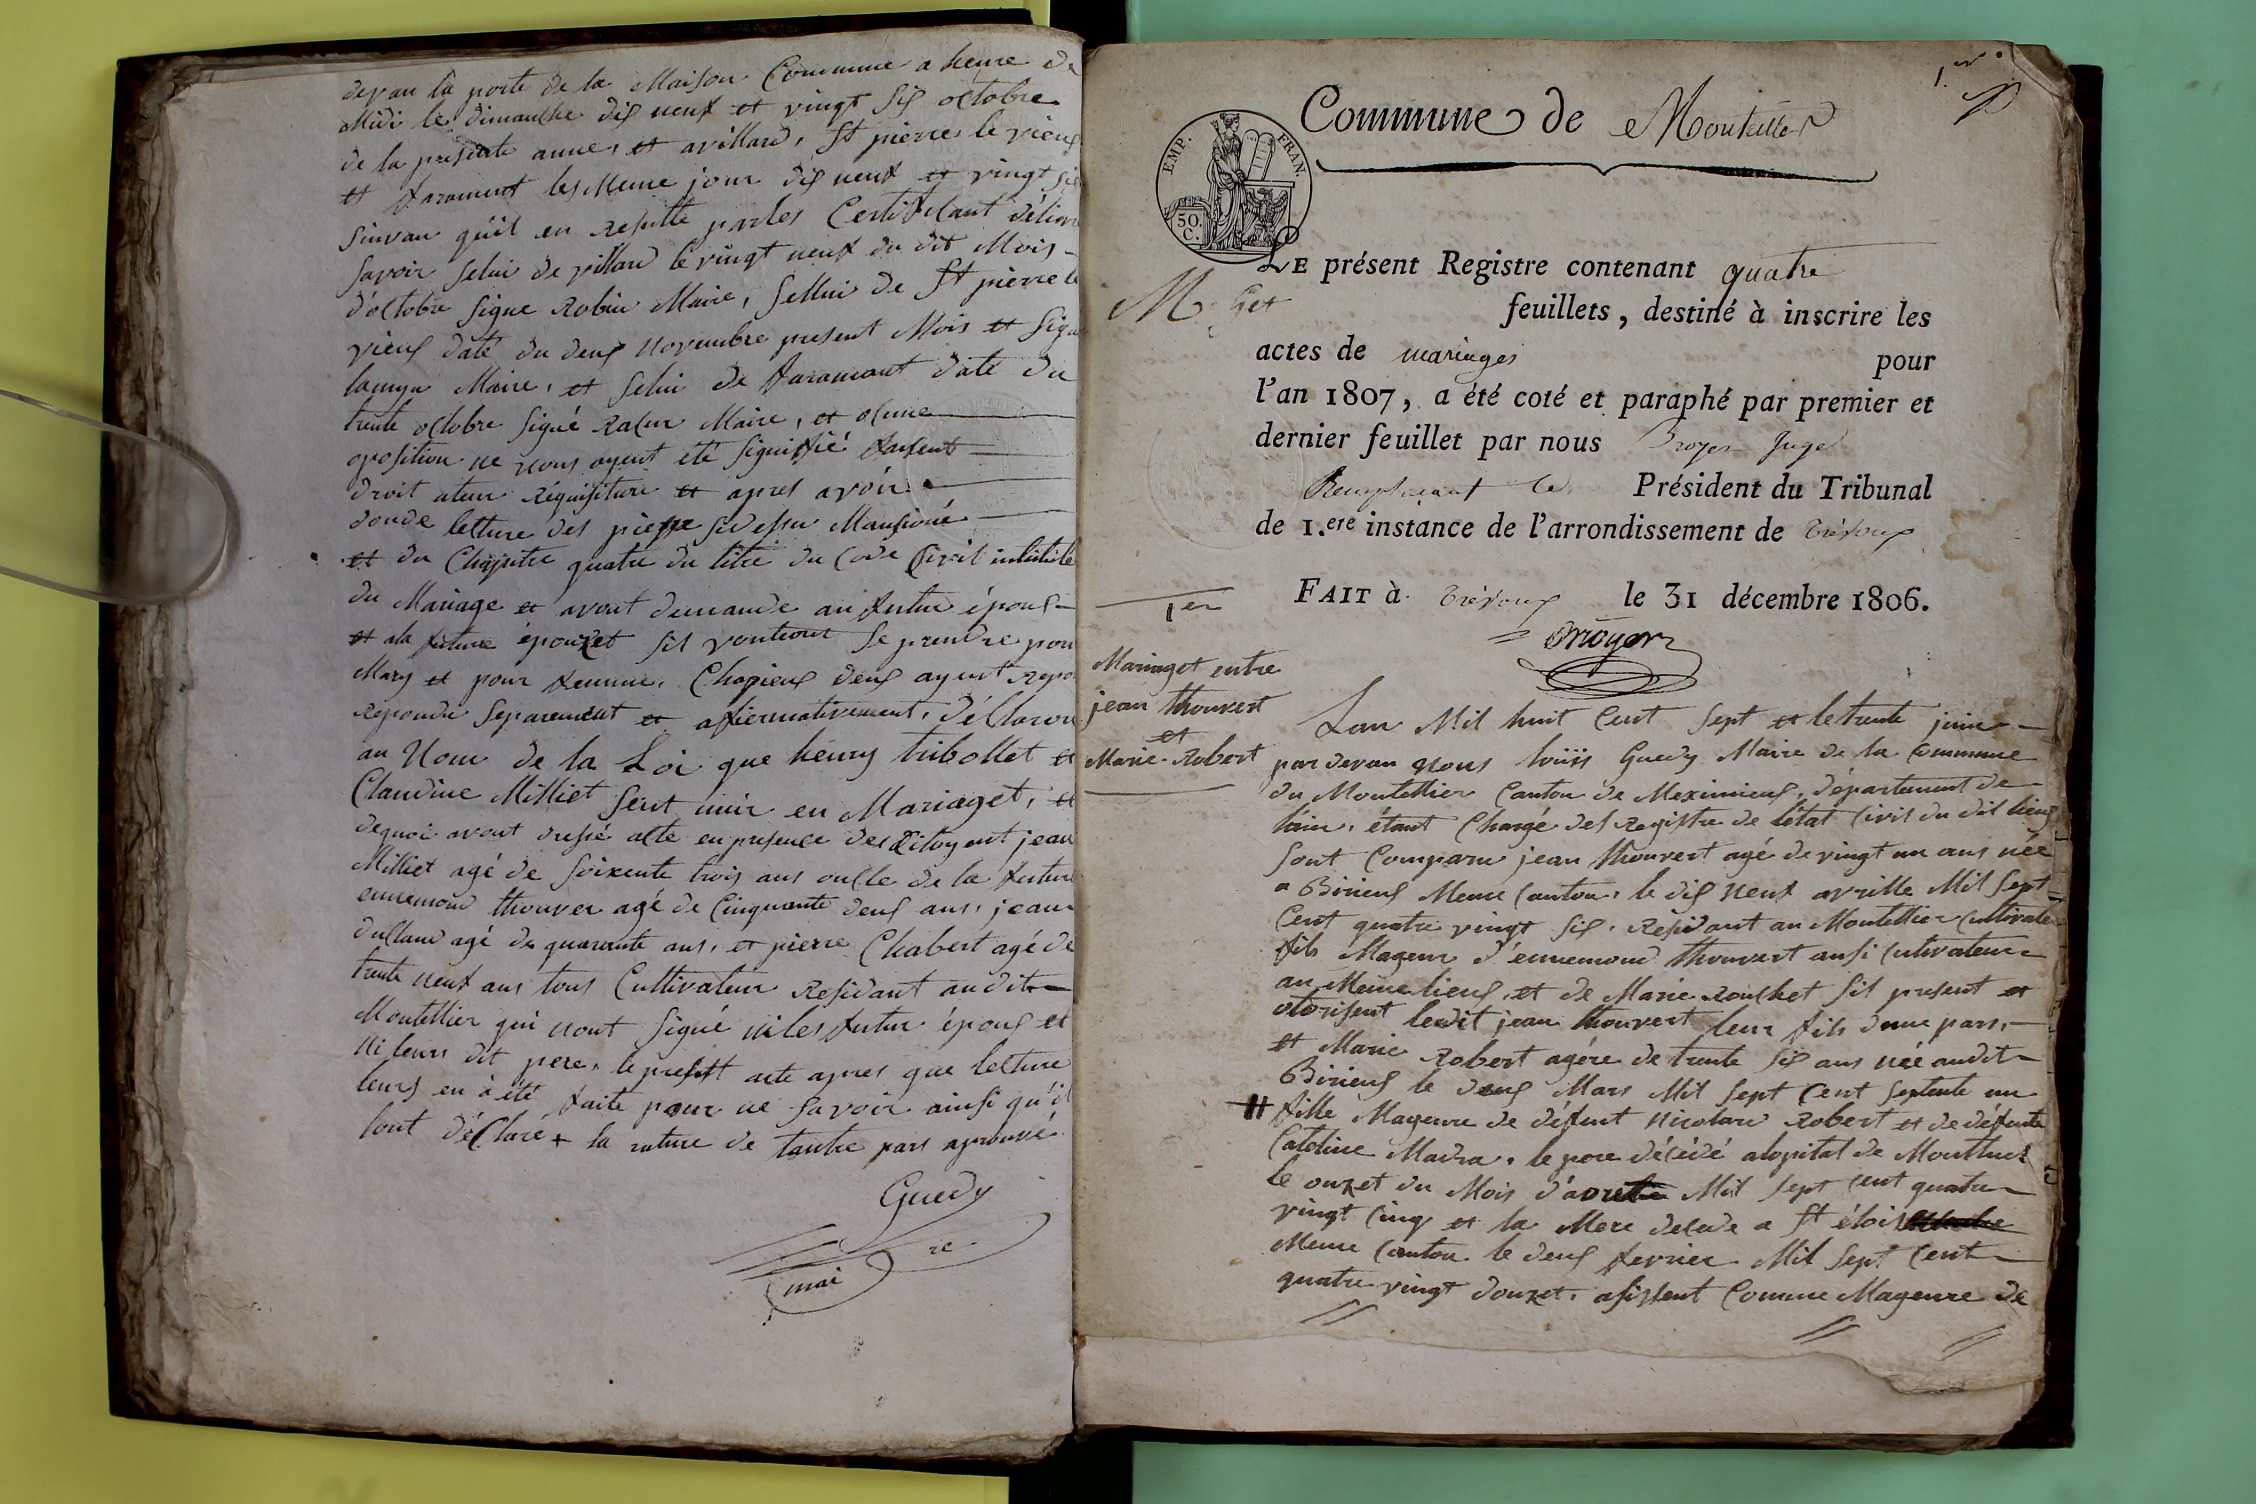 devan la porte de la Maison Commune a heure de
Midi le dimanche dis neuf et vingt sis octobre
de la presente annes et avillard, St pierre le vieux
et faramant les Meme jour dis neuf et vingt sis
suivan quil en resulte parles Certificant délivré
savoir selui de villard le vingt neuf du dit Mois
d'octobre signe Robin Maire, sellui de St pierre le
vieux daté du deux novembre present Mois et signé
Maire, et selui de faramant daté du
trente octobre signé Maire, et oqune
oposition ne nous ayent été signiffié faisent
droit aleur réquisiture et apres avoir
donde letture des piesse sidessu Mansioné
et du Chapitre quatre du titre du Code Civil intitulé
du Mariage et avont demande au futur époux
et ala future épouzet sil vouleont se prendre pour
Mary et pour femme. Chaqieux deux ayent
repondu separement et afiermativement, déClaron
au Nom de la Loi que henry tribollet et
Claudine Milliet sont unir en Mariaget, et
dequoi avont dressé alte enpresence des Citoyent jean
Milliet agé de soixente trois ans oncle de la future
ennemond thouver agé de Cinquante deux ans, jean
duclaud agé de quarante ans, et pierre Chabert agé de
trente neuf ans tous Cultivateur residant audit
Montellier qui nont signé niles futur époux et
ni leurs dit pere, le present acte apres que letture
leurs en à été faite pour ne savoir ainsi qu'il
lont déClare + la rature de lautre pars aprouvé
Guedy
maire
1er
Commune de Montellier
EMP. FRAN.
50.
C.
LE présent Registre contenant quatre
M get
feuillets, destiné à inscrire les
actes de mariages pour
l'an 1807, a été coté et paraphé par premier et
dernier feuillet par nous Broyer Juge
Remplacant le Président du Tribunal
de 1.ere instance de l'arrondissement de Trévoux
FAIT à Trévoux le 31 décembre 1806.
Broyer
1er
Mariaget entre
jean thouvert
et
Marie Robert
Lan Mil huit Cent sept et le trente juin
par devan nous louiis Guedy Maire de la Commune
du Montellier Canton de Meximieux, département de
lain, étant Chargé des registre de létat Civil du dit lieux
sont Comparu jean thouvert agé de vingt un ans née
a Birieux Meme Canton, le dis neuf avrille Mil sept
Cent quatre vingt sis, résidant au Montellier Cultivateur
fils Mageur d'ennemond thouvert ausi Cutivateur
au Meme lieux, et de Marie rouchet sit present et
otorisent ledit jean thouvert leur fils dune pars,
et Marie Robert agére de trente sis ans née audit
Birieux le deux Mars Mil sept Cent septente un
# fille Mageure de défunt nicolard Robert et de défunte
Catéline Madra, le pere décédé alopital de Montluel
le onzet du Mois d'aout Mil sept Cent quatre
vingt Cinq et la Mere decede a St éloi
Meme Canton le deux fevrier Mil sept Cent
quatre vingt douzet, asistent Comme Mageure de